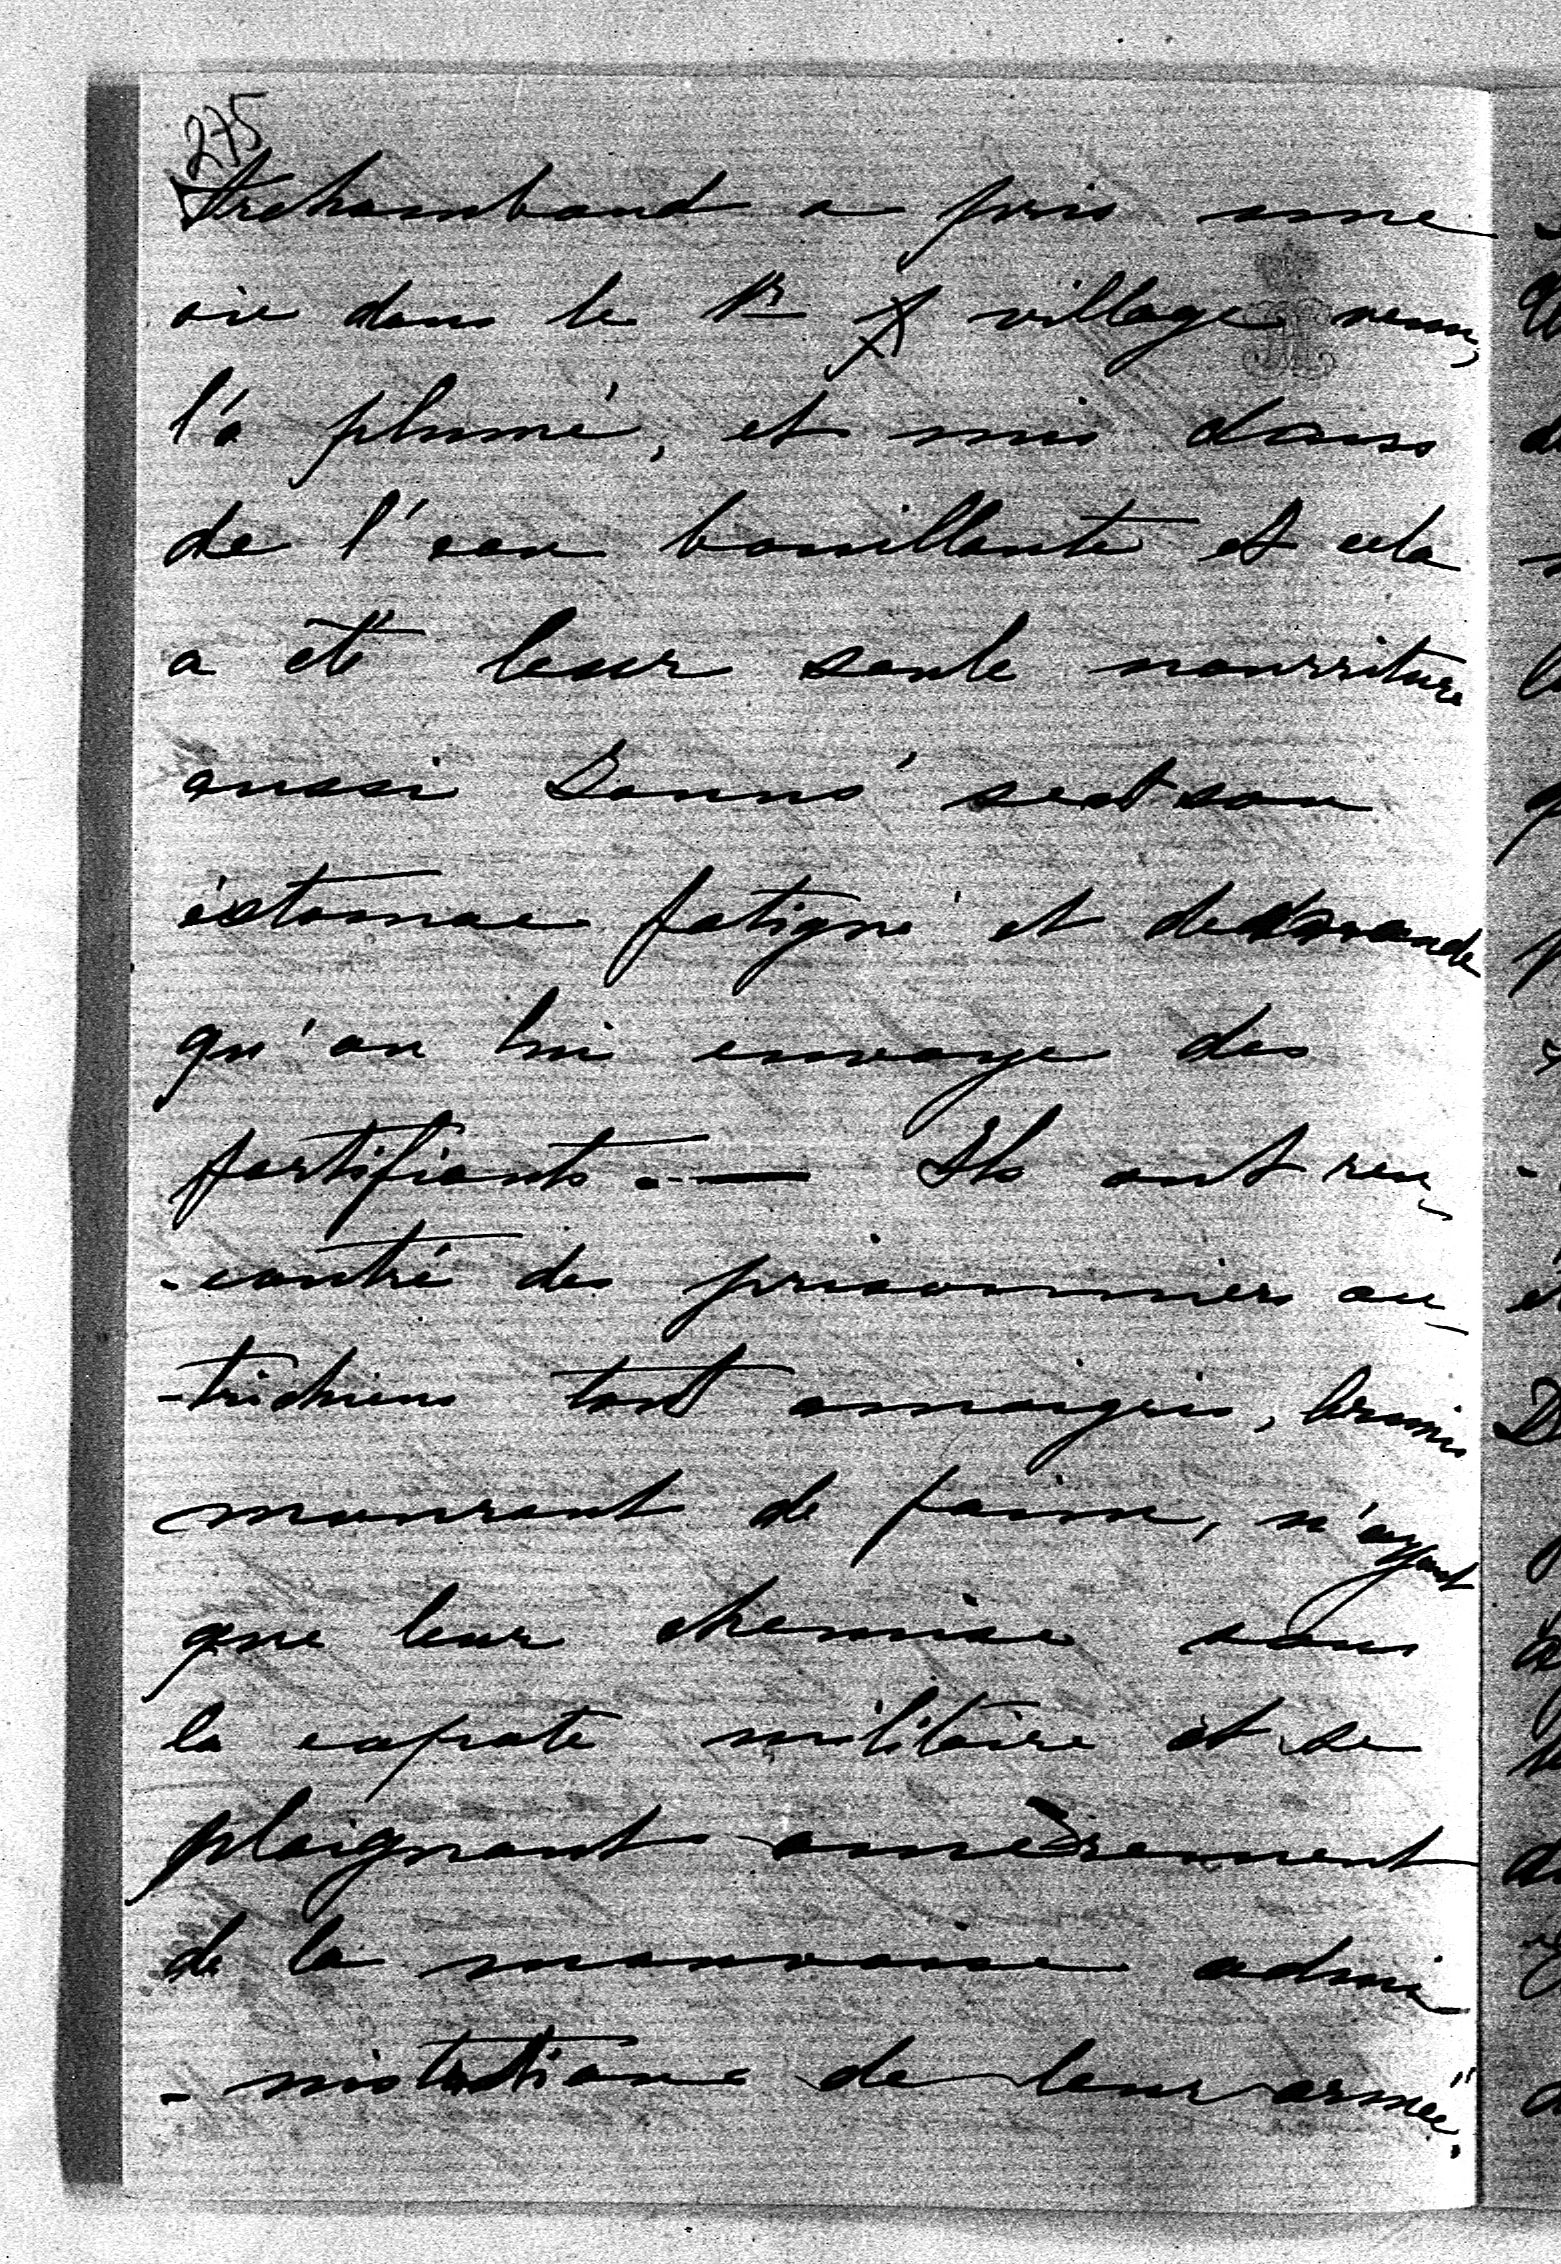 275
Archambaud a pris une
oie dans le 1er village venu,
l'a plumé, et mis dans
de l'eau bouillante et cela
a été leur seule nourriture
aussi sent son
éstomac fatigué et demande
qu'on lui envoye des
fortifiants. — Ils ont ren
-contré des prisonniers au
-trichiens tout amaigris,
mourant de faim, n'ayant
que leur chemise sous
la capote militaire et se
plaignant amèrement
de la mauvaise admi
-nistration de leur armée.